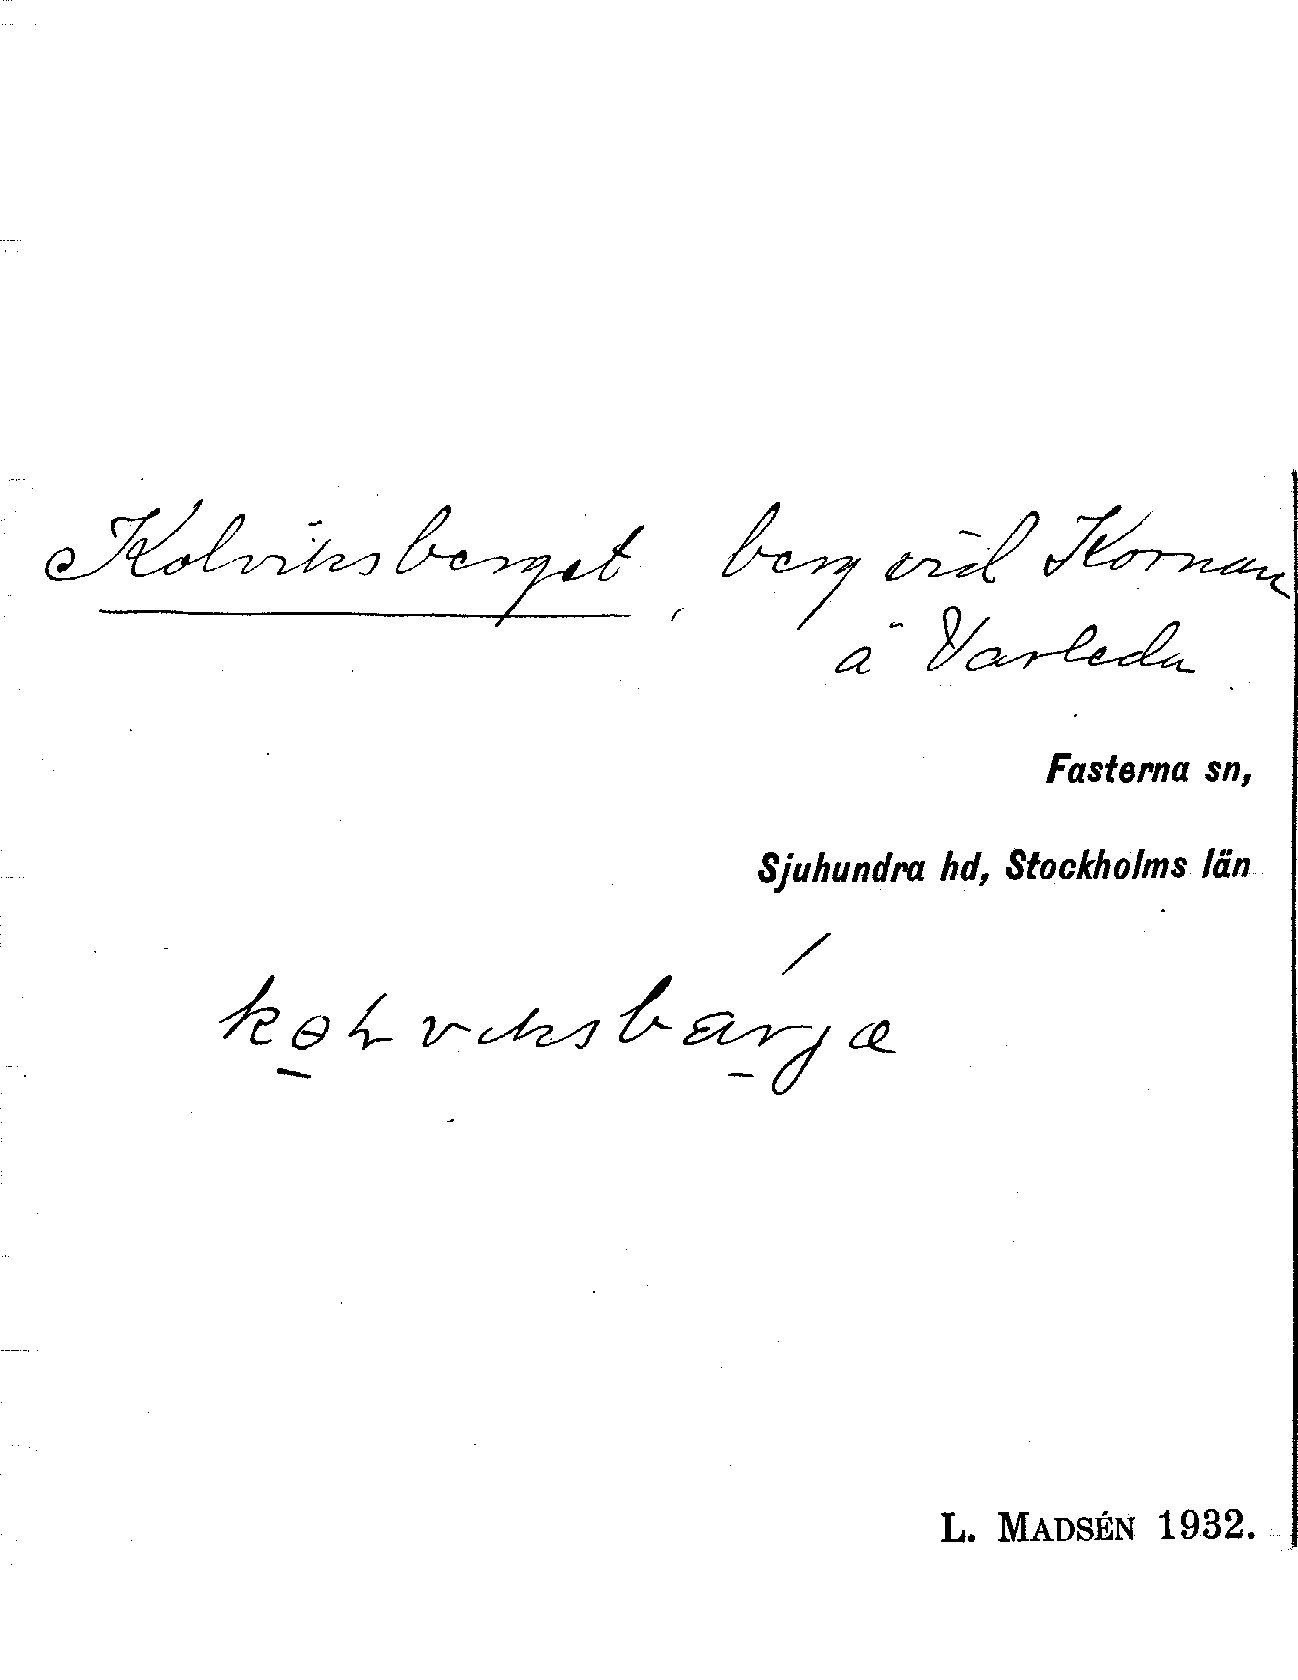 Kolviksberget, berg vid Kornan
å Varleda
Fasterna sn,
Sjuhundra hd, Stockholms län
L. MADSÉN 1932.